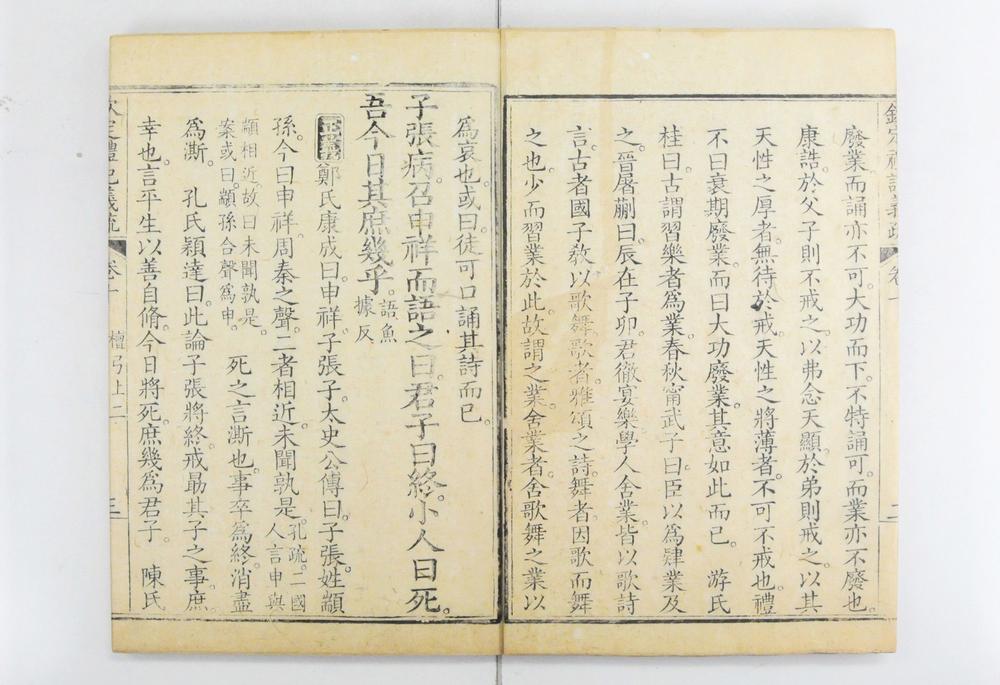 廢業而誦亦不可。大功而下不特誦可。而業亦不廢也。
康誥。於父子則不戒之。以弗念天顯。於弟則戒之。以其
天性之厚者。無待於戒。天性之將薄者。不可不戒也。禮
不曰衰期廢業。而曰大功廢業。其意如此而已。 游氏
桂曰。古謂習樂者爲業。春秋甯武子曰。臣以爲肄業及
之。晉屠蒯曰。辰在子卯。君徹宴樂。學人舍業。皆以歌詩
言。古者國子敎以歌舞。歌者。雅頌之詩。舞者。因歌而舞
之也。少而習業於此。故謂之業。舍業者。舍歌舞之業以
爲哀也。或曰。徒可口誦其詩而已。
子張病。召申祥而語之曰。君子曰終。小人曰死。
吾今日其庶幾乎。語魚據反
正義 鄭氏康成曰。申祥。子張子。太史公傳曰。子張姓顓
孫。今曰申祥。周秦之聲。二者相近。未聞孰是。孔疏。二國人言申與
顓相近。故曰未聞孰是。案或曰。顓孫合聲爲申。 死之言澌也。事卒爲終。消盡
爲澌。 孔氏穎達曰。此論子張將終戒勗其子之事。庶
幸也。言平生以善自脩。今日將死。庶幾爲君子。 陳氏
欽定禮記義疏 卷十 檀弓上二 三